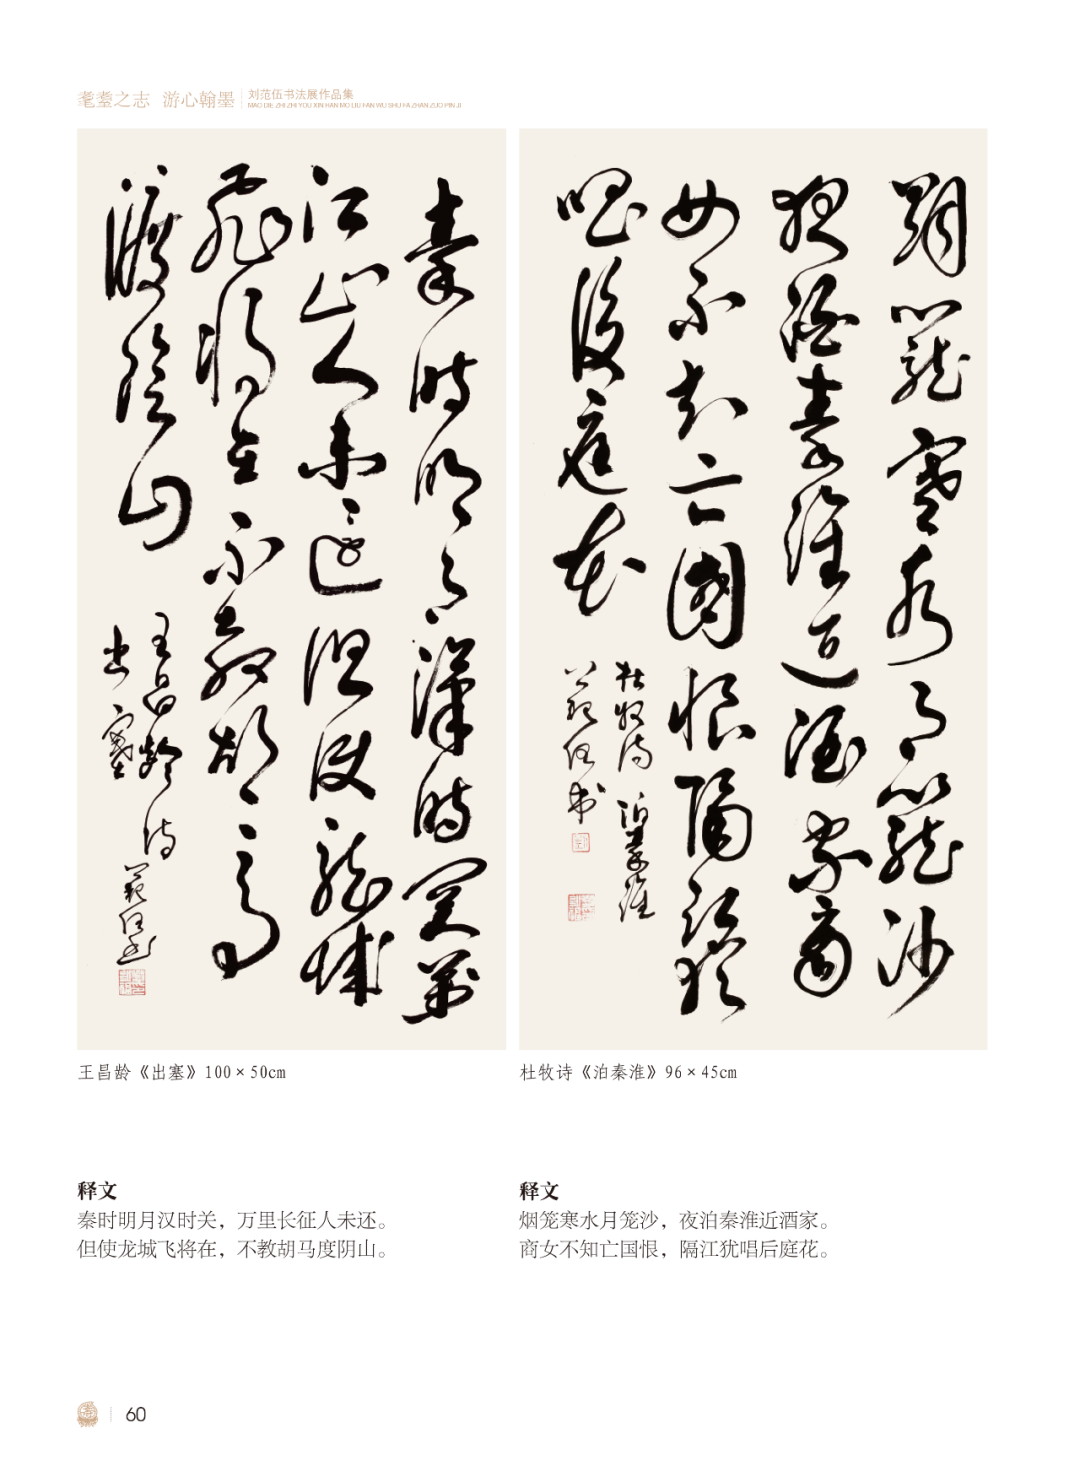 耄耋之志 游心翰墨
刘范伍书法展作品集
MAO DIE ZHI ZHI YOU XIN HAN MO LIU FAN WU SHU FA ZHAN ZUO PIN JI
秦时明月漢時關萬
江山人未還但使龍城
飛將在不教胡馬
渡陰山
王昌齡詩
出塞
範伍書
烟籠寒水月籠沙
夜泊秦淮近酒家商
女不知亡國恨隔江猶
唱後庭花
杜牧詩 泊秦淮
範伍書
王昌龄《出塞》100×50cm
杜牧诗《泊秦淮》96×45cm
释文
秦时明月汉时关，万里长征人未还。
但使龙城飞将在，不教胡马度阴山。
释文
烟笼寒水月笼沙，夜泊秦淮近酒家。
商女不知亡国恨，隔江犹唱后庭花。
60